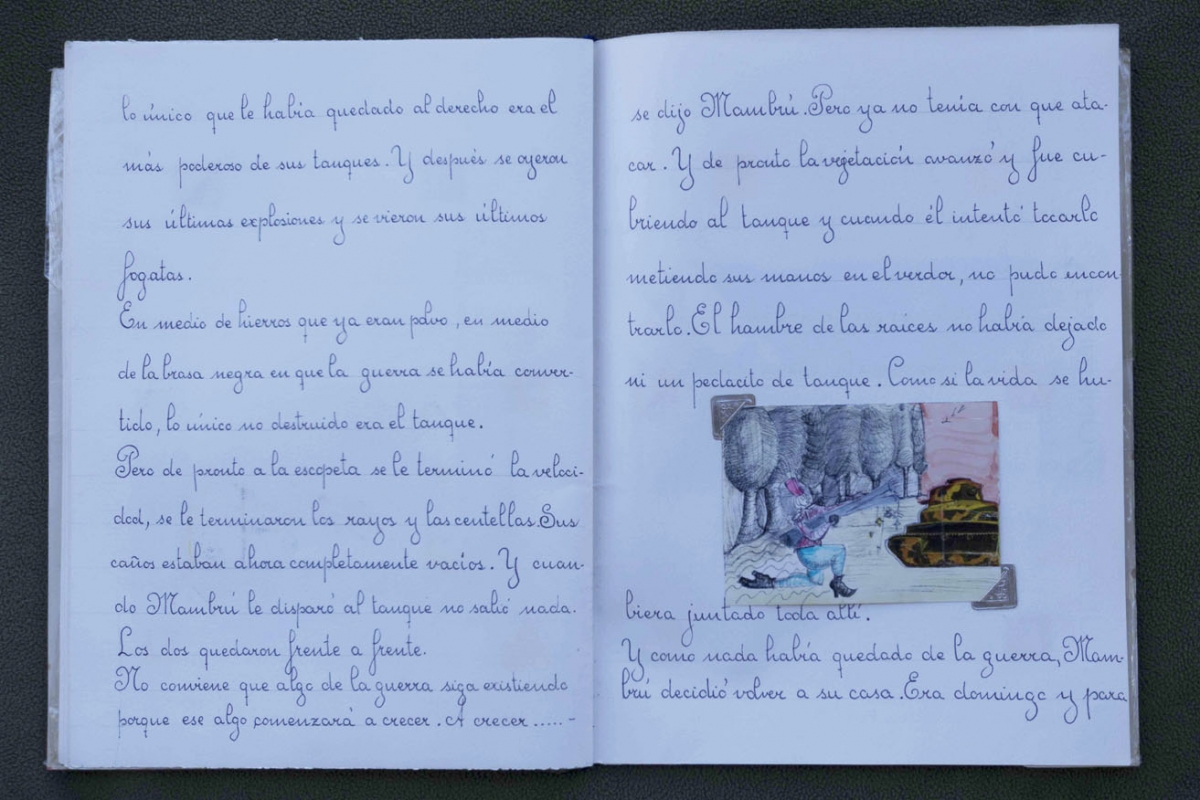 lo único que le había quedado al derecho era el
más poderoso de sus tanques. Y después se oyeron
sus últimas explosiones y se vieron sus últimos
fogatas.
En medio de hierros que ya eran polvo, en medio
de la brasa negra en que la guerra se había conver-
tido, lo único no destruido era el tanque.
Pero de pronto a la escopeta se le terminó la veloci-
dad, se le terminaron los rayos y las centellas. Sus
caños estaban ahora completamente vacíos. Y cuan-
do Mambrú le disparó al tanque no salió nada.
Los dos quedaron frente a frente.
No conviene que algo de la guerra siga existiendo
porque ese algo comenzará a crecer. A crecer.....-
se dijo Mambrú. Pero ya no tenía con que ata-
car. Y de pronto la vegetación avanzó y fue cu-
briendo al tanque y cuando él intentó tocarlo
metiendo sus manos en el verdor, no pudo encon
trarlo. El hambre de las raíces no había dejado
ni un pedacito de tanque. Como si la vida se hu-
biera juntado toda allí.
Y como nada había quedado de la guerra, Mam-
brú decidió volver a su casa. Era domingo y para